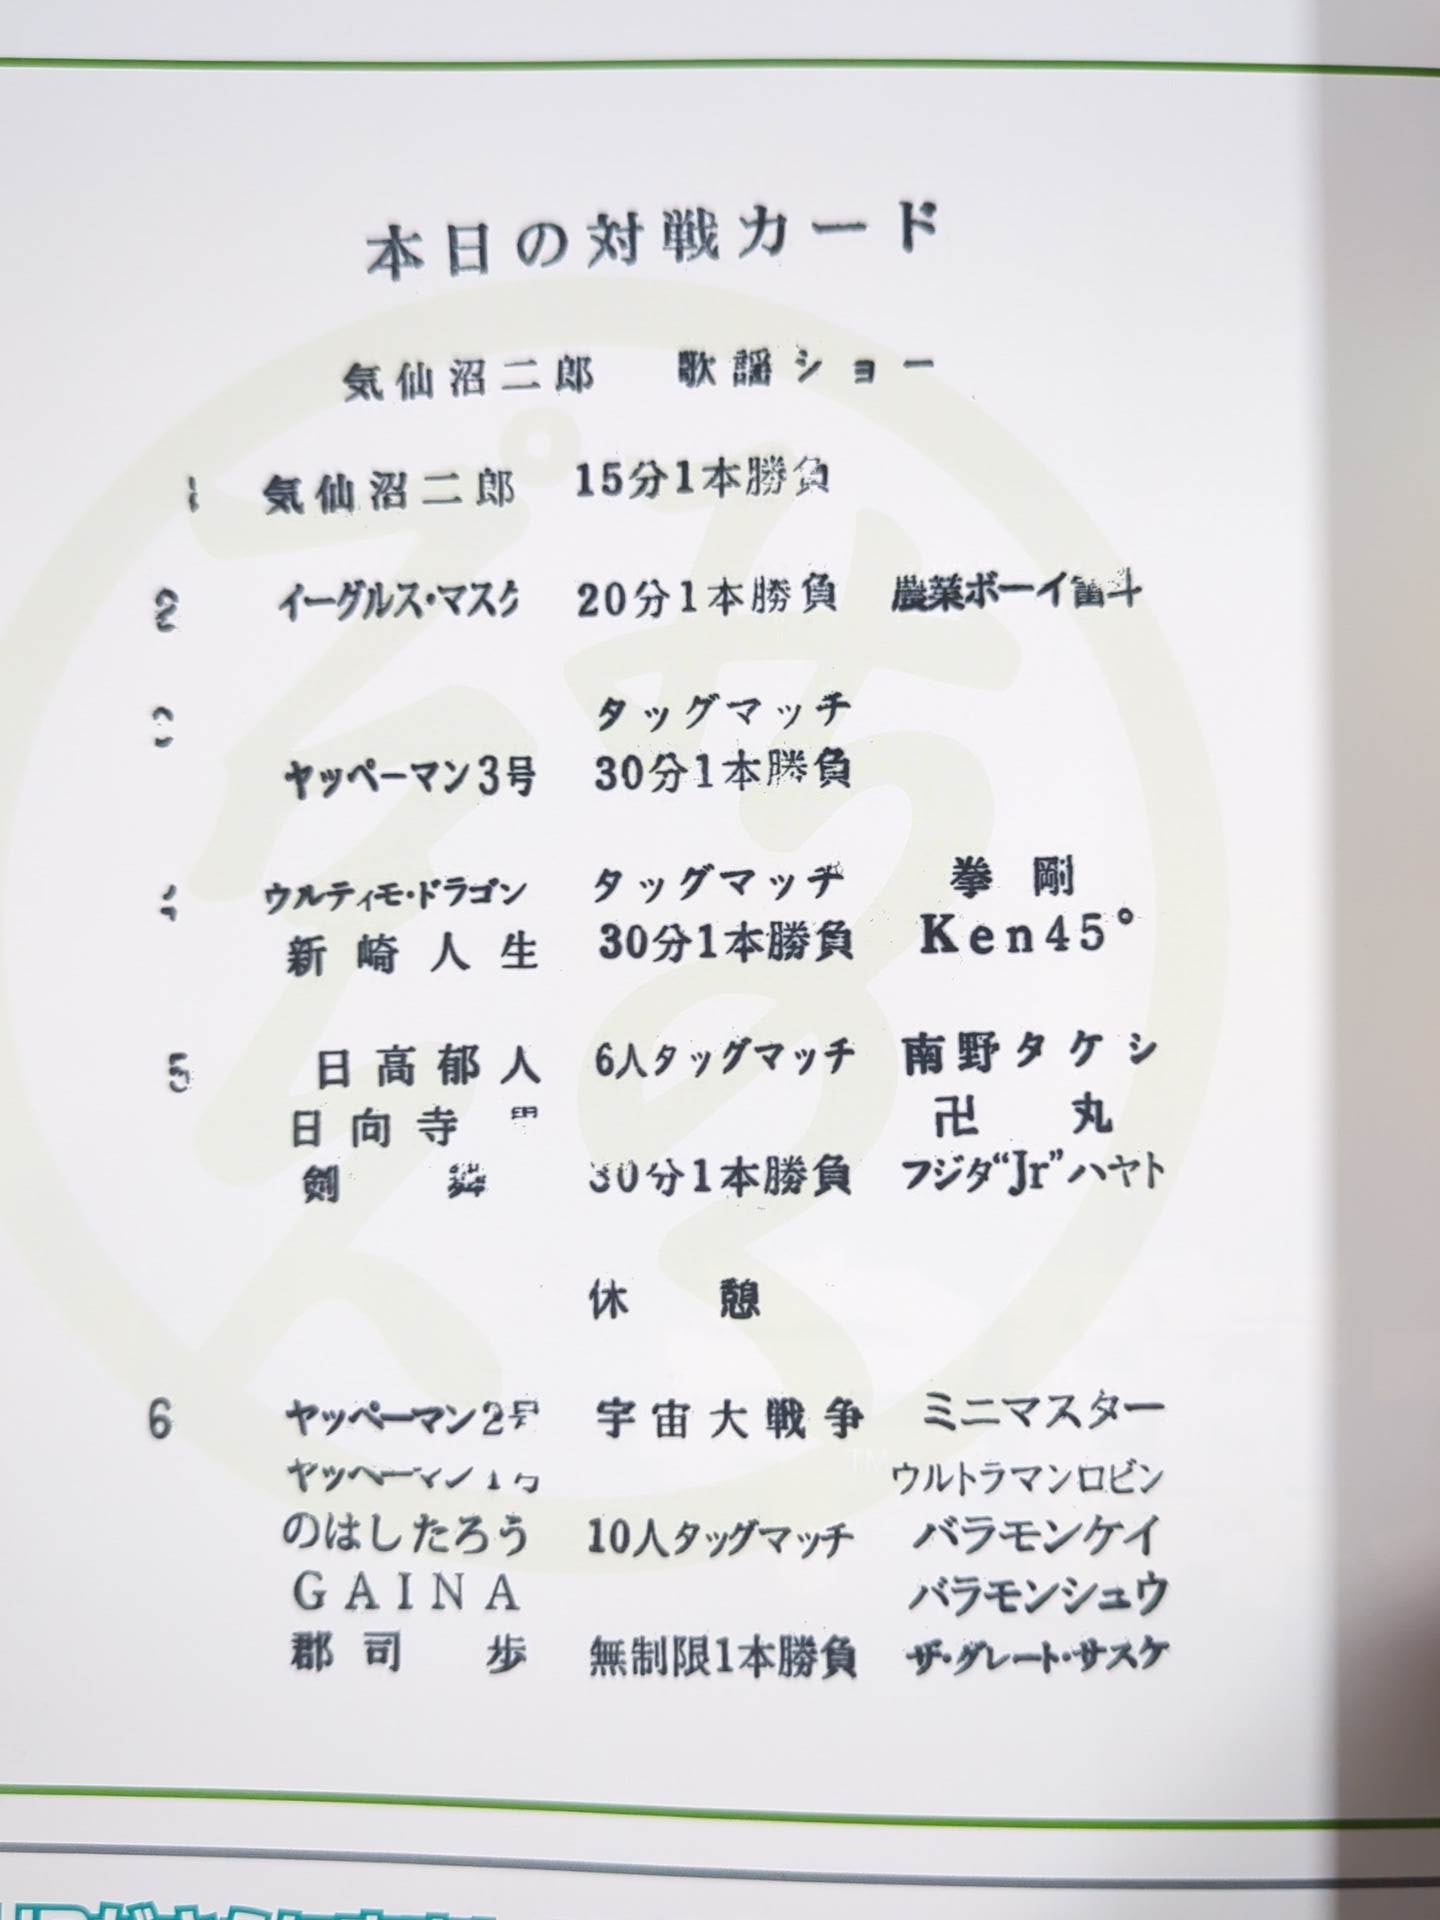 本日の対戦カード
気仙沼二郎 歌謡ショー
1 気仙沼二郎 15分1本勝負
2 イーグルス・マスク 20分1本勝負 農業ボーイ
3 タッグマッチ
ヤッペーマン3号 30分1本勝負
4 ウルティモ・ドラゴン タッグマッチ 拳剛
新崎人生 30分1本勝負 Ken45°
5 日高郁人 6人タッグマッチ 南野タケシ
日向寺 卍丸
剣舞 30分1本勝負 フジタ"Jr"ハヤト
休憩
6 ヤッペーマン2号 宇宙大戦争 ミニマスター
ヤッペーマン1号 ウルトラマンロビン
のはしたろう 10人タッグマッチ バラモンケイ
GAINA バラモンシュウ
郡司歩 無制限1本勝負 ザ・グレート・サスケ